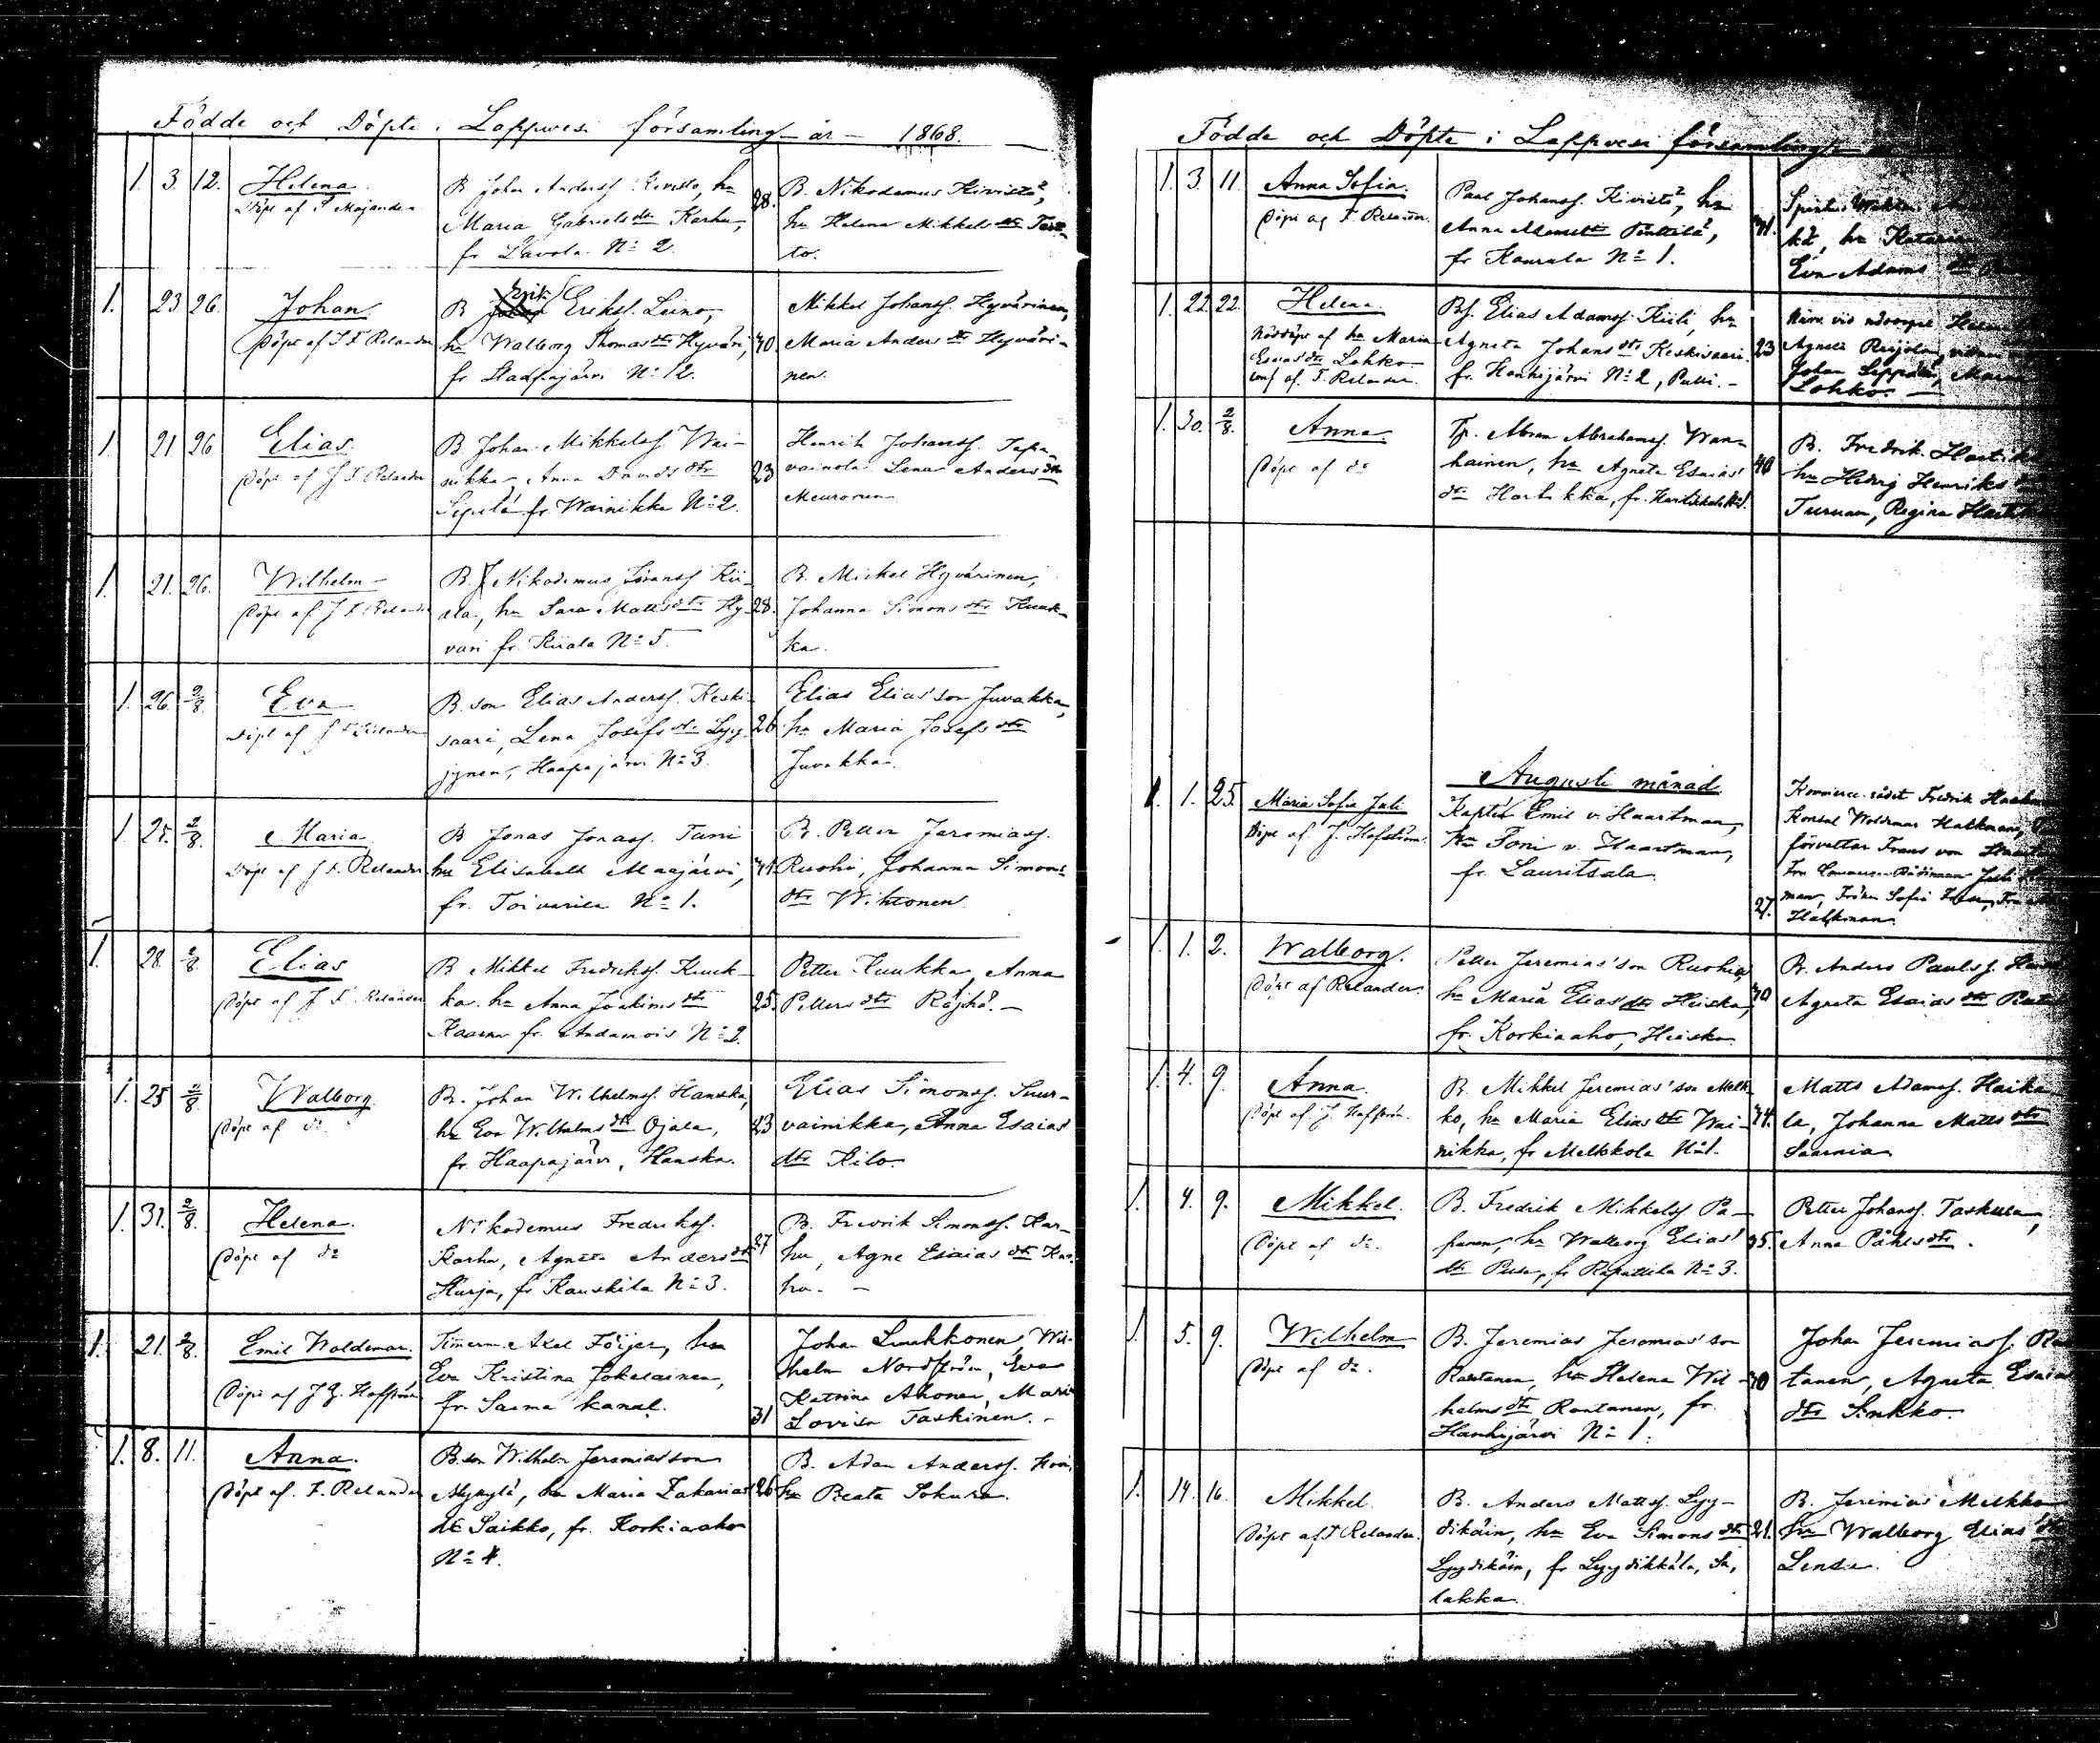 Födde och Döpte i Lappvesi församling år 1868.
1. 3. 12. Helena.
Döpt af
B. Johan Anderss. Kivisto, hu
Maria Gabriels dtr Karhu,
fr Lavola No 2.
28.
B. Nikodemus Kivistö,
hu Helena Mikkels dtr
to.
1. 23 26. Johan
Döpt af J F Relander
B Erik Eriks. Leino,
hu Walborg Thomas dtr Hyväri,
fr Haapajärvi No 12.
40.
Mikkel Johanss. Hyvärinen,
Maria Anders dtr Hyväri-
nen.
1 21 26 Elias.
Döpt af J F Relander
B. Johan Mikkelss. Wai-
nikka, Anna Davids dtr
fr Wainikka No 2.
23
Henrik Johanss.
vainola Lena Anders dtr
Meuronen
1. 21. 26. Wilhelm
Döpt af J F Relander
B. Nikodemus Göranss Kii-
ala, hu Sara Matts dtr Hy-
vari fr. Kiiala No 5
28.
B. Mickel Hyvärinen,
Johanna Simons dtr Kuuk-
ka.
1. 26. 2/8. Eva
Döpt af J F Relander
B. son Elias Anderss. Keski-
saari, Lena Josefs dtr Lyy-
jynen, Haapajärvi No 3.
26
Elias Elias'son Juvakka,
hu Maria Josefs dtr
Juvakka.
1 25. 2/8. Maria
Döpt af J F. Relander
B Jonas Jonass. Tani
hu Elisabeth Maajärvi,
fr. Toivarila No 1.
41.
B. Petter Jeremiass.
Ruohi, Johanna Simons
dtr Wihtonen.
1. 28. 2/8. Elias
Döpt af J F Relander
B Mikkel Fredrikss. Kuuk-
ka. hu Anna Joakims dtr
Kaarna fr. Andamois No 2.
25.
Petter Kuukka, Anna
Petters dtr Räjhä. –
1. 25 2/8. Walborg.
Döpt af do
B. Johan Wilhelmss. Hanska,
hu Eva Wilhelms dtr Ojala,
fr. Haapajärvi, Hanska.
23
Elias Simonss. Suur-
vainikka, Anna Esaias
dtr Kilo.
1. 31. 2/8. Helena.
Döpt af do
Nikodemus Fredrikss.
Karhu, Agneta Anders dtr
Hurja, fr Kauskila No 3.
27
B. Fredrik Simonss. Kar-
hu, Agne Esaias dtr Kar-
hu. –
1. 21. 2/8. Emil Woldemar.
Döpt af J G. Hoffström
Timerm. Axel Föijer, hu
Eva Kristina Jokelainen,
fr. Saima kanal.
31
Johan Luukkonen, Wil-
helm Nordström, Eva
Katrina Ahonen, Maria
Lovisa Taskinen. –
1. 8. 11. Anna.
Döpt af. F. Relander
B. son Wilhelm Jeremias'son
Myhylä, hu Maria Zakarias
dtr Saikko, fr. Korkiaaho
No 4.
26
B. Adam Anderss.
hu Beata Sokura.
Födde och Döpte i Lappvesi församling
1. 3. 11. Anna Sofia.
Döpt af F. Relander.
Paul Johanss. Kivistö, hu
Anna Penttilä,
fr Kaurala No 1.
41.
hu Katarina
Eva Adams dtr
1. 22. 22. Helena
Nöddöpt af hu Maria
Esaias dtr Lohko
conf af. F. Relander.
Bs. Elias Adamss Kiili, hu
Agneta Johans dtr Keskisaari
fr. Hanhijärvi No 2, Pulli. –
23
Närv. vid nöddopet
Agneta
Johan Seppälä, Maria
Lohko. –
1. 30. 2/8. Anna.
Döpt af do
Tp. Abram Abrahamss. Wan-
hainen, hu Agneta Esaias'
dtr Hartikka, fr. Hartikkala No 1.
40
B. Fredrik
hu Hedvig Henriks
Turunen, Regina
Augusti månad.
1. 1. 25. Maria Sofia Juli
Döpt af. J. Hoffström.
Kaptén Emil v. Haartman,
hu Toni v. Haartman,
fr. Lauritsala.
27.
Kommerce-rådet Fredrik
Konsul Woldemar Hackman,
förvaltar Frans von
Fru Commerce-Rådinnan Juli
man, Fröken Sofia
Hackman
1. 1. 2. Walborg.
Döpt af Relander.
Petter Jeremias'son Ruohia,
hu Maria Elias dtr Heiska,
fr. Korkiaaho, Heiska.
30
B. Anders Paulss.
Agneta Esaias dtr
1. 4. 9. Anna.
Döpt af. J. Hoffström.
B. Mikkel Jeremias'son Melk-
ko, hu Maria Elias dtr Wai-
nikka, fr Melkkola No 1.
34.
Matts Adamss. Haika-
la, Johanna Matts dtr
Saarnia.
1. 4. 9. Mikkel.
Döpt af do.
B. Fredrik Mikkelss Pa-
panen, hu Walborg Elias'
dtr Pusa, fr Rapattila No 3.
35.
Petter Johanss. Taskula,
Anna Påhls dtr.
1. 5. 9. Wilhelm
Döpt af do.
B. Jeremias Jeremias'son
Rantanen, hu Helena Wil-
helms dtr Rantanen, fr.
Hanhijärvi No 1.
30
Johan Jeremiass. Ran
tanen, Agneta Esaias
dtr Sinkko.
1. 14. 16. Mikkel.
Döpt af F. Relander.
B. Anders Mattss. Lyy-
dikäin, hu Eva Simons dtr
Lyydikäin, fr Lyydikkälä, Sa,
lakka.
21.
B. Jerimias Melkko
hu Walborg Elias' dtr
Lensu.